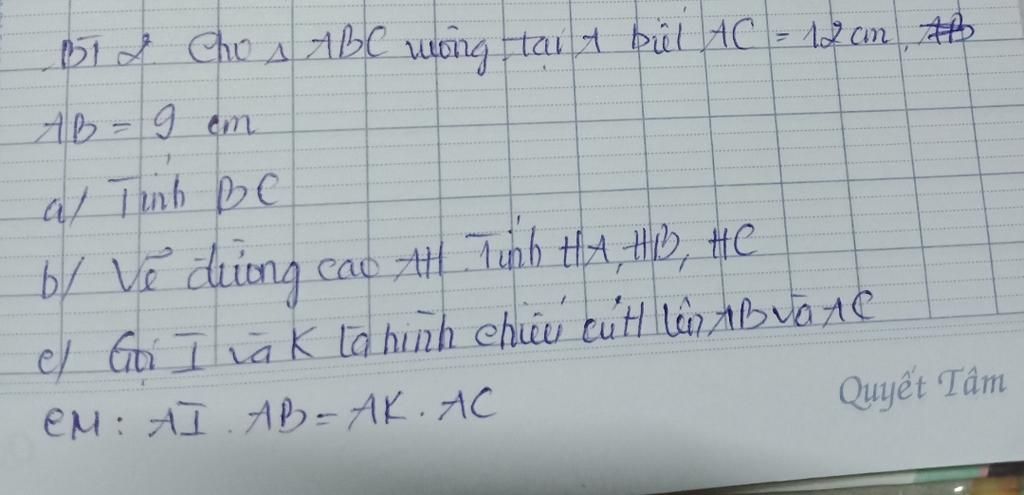 BT2 Cho △ ABC vuông tại A biết AC = 12 cm, AB
AB = 9 cm
a/ Tính BC
b/ Vẽ đường cao AH. Tính HA, HB, HC
c/ Gọi I và K là hình chiếu củH lên AB và AC
CM: AI . AB = AK . AC
Quyết Tâm